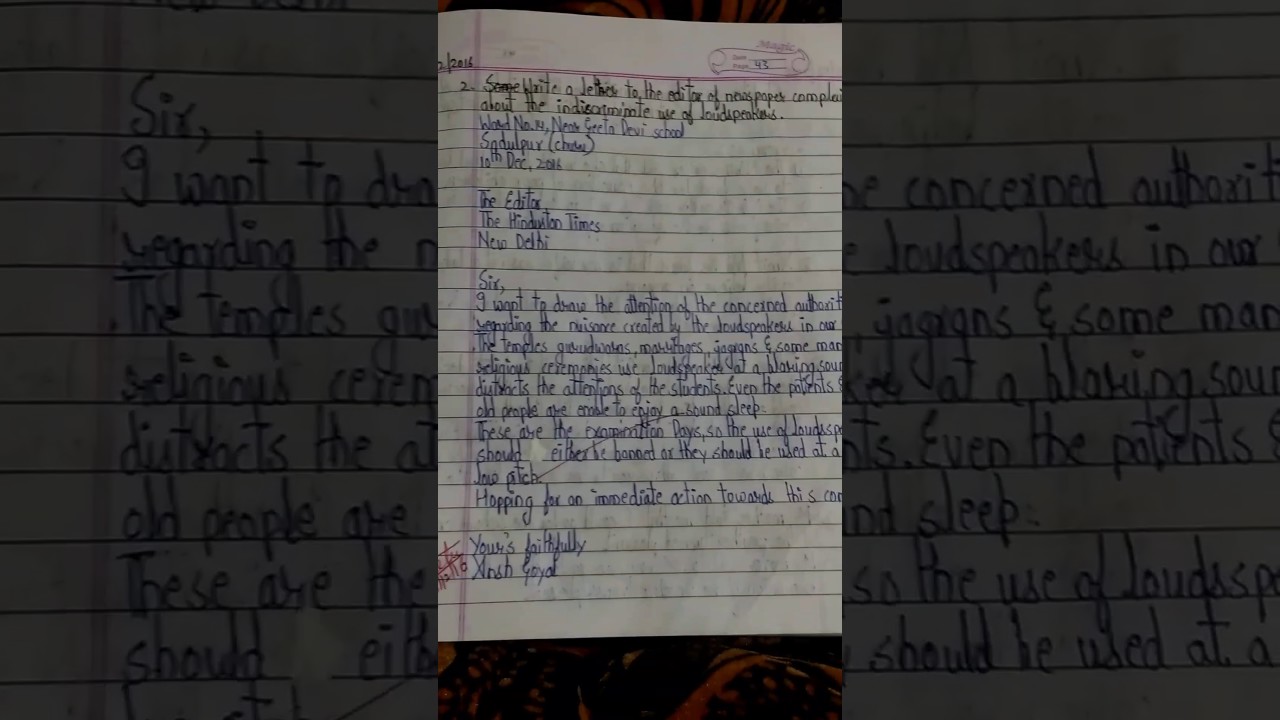 2/2016
Magic
Page 43
2. Some Write a letter to the editor of newspaper complai
about the indiscriminate use of loudspeakers.
Ward No.14, Near Geeta Devi school
Sadulpur (churu)
10th Dec, 2016
The Editor
The Hindustan Times
New Delhi
Sir,
I want to draw the attention of the concerned authorit
regarding the nuisance created by the loudspeakers in our
The temples gurudwaras, marriages, jagrans & some man
religious ceremonies use loudspeaker at a blaring soun
distracts the attentions of the students. Even the patients &
old people are enable to enjoy a sound sleep.
These are the examination Days, so the use of loudsspe
should either be banned or they should be used at a
low pitch.
Hopping for an immediate action towards this con
Your's faithfully
Ansh Goyal